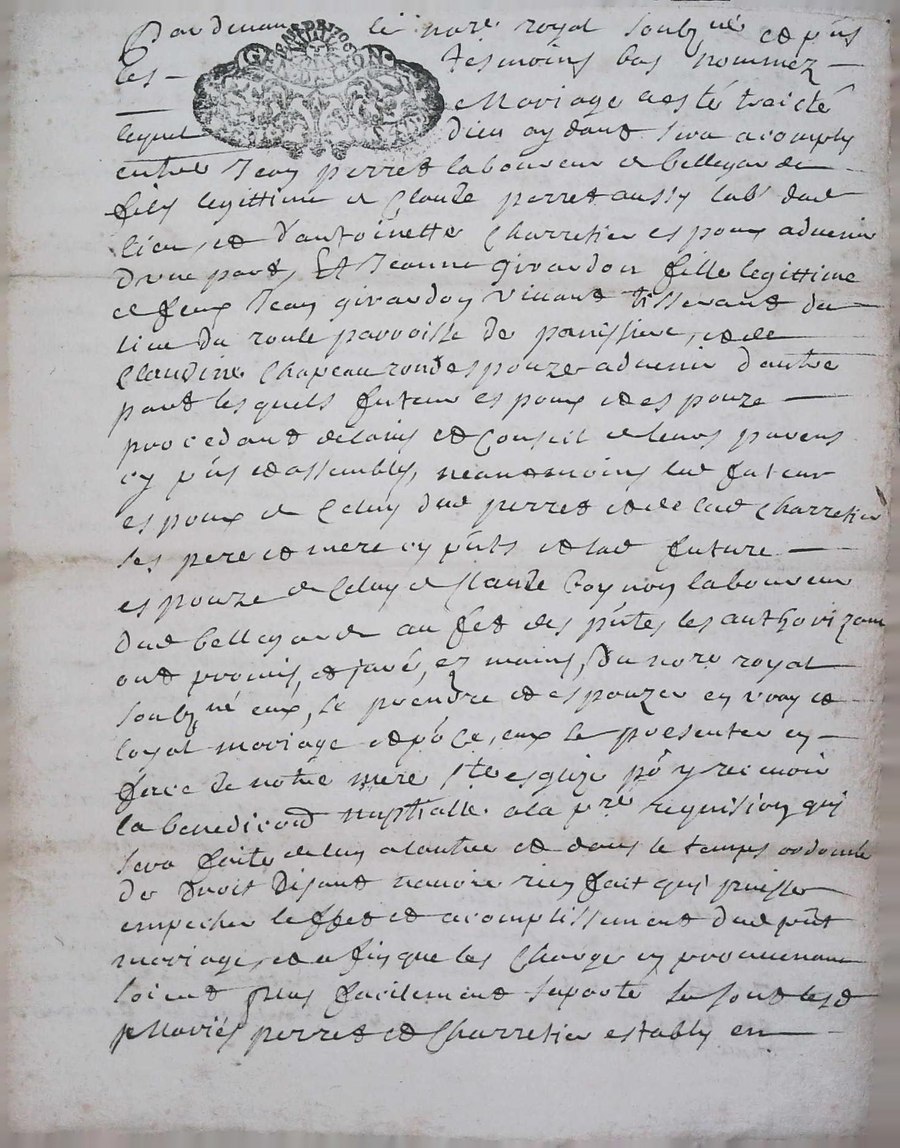 Pardevant le nore royal soubzné et pñs
les tesmoins bas nommez
GEN DE LYON
Mariage a esté traicté
lequel Dieu aydant sera acomply
entre Jean perret laboureur de bellegarde
filz legittime de Claude perret aussy lab dud
lieu et d'antoinette Charretier espoux advenir
d'une part, Et Jeanne girardon fille legittime
de feux Jean girardon vivant tisserant du
lieu du roule parroisse de panissiere, et de
Claudine Chapeauronde espouze advenir d'autre
part lesquels futeur espoux et espouze
procedant de laius et Conseil de leurs parens
cy pñs et assemblés, neantmoins led futeur
espoux de Celuy dud perret et de lad Charretier
ses pere et mere cy pñts et lad future
espouze de Celuy de Claude laboureur
dud bellegarde au fet des pñtes les authorizant
ont promis, et juré, ez mains, du nore royal
soubzné eux, se prendre et espouzer en vray et
loyal mariage et eux se presenter en
face de notre mere ste esglize po y recevoir
la benediction nuptialle a la pre requision qui
sera faite de lun a lautre et dans le temps ordonné
de droit disant navoir rien fait qui puisse
empecher leffet et acomplissement dud pñt
mariage, et afin que les Charges en provenant
soient plus facilement suporté se sont lesd
Mariés perret et Charretier estably en